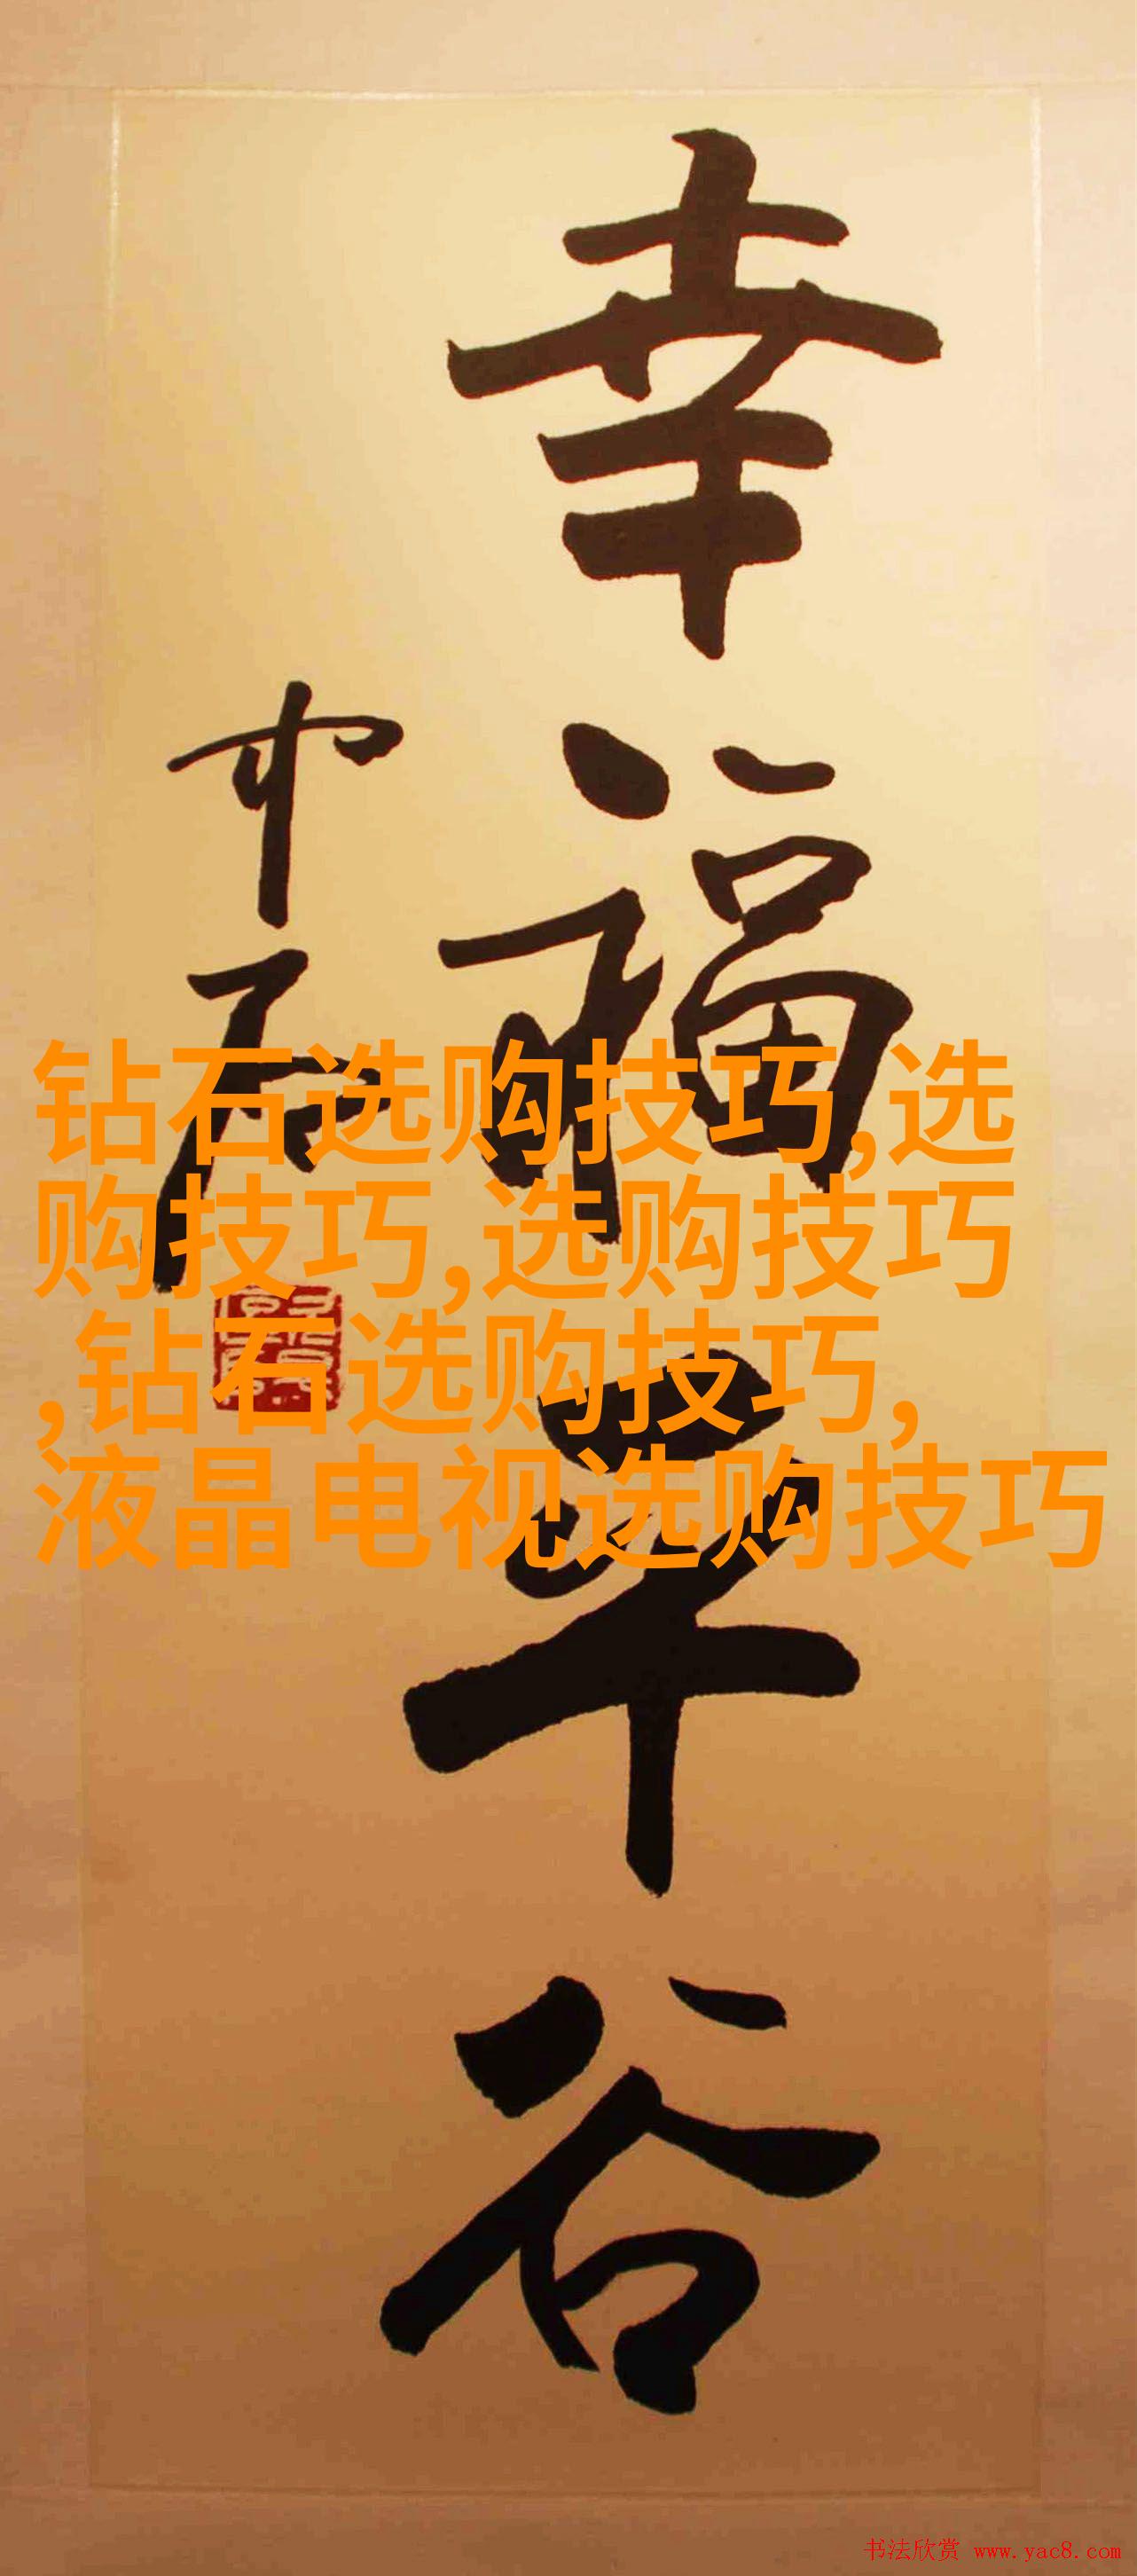 幸福平谷
中石
钻石选购技巧,选
购技巧,选购技巧
,钻石选购技巧,
液晶电视选购技巧
书法欣赏 www.yac8.com